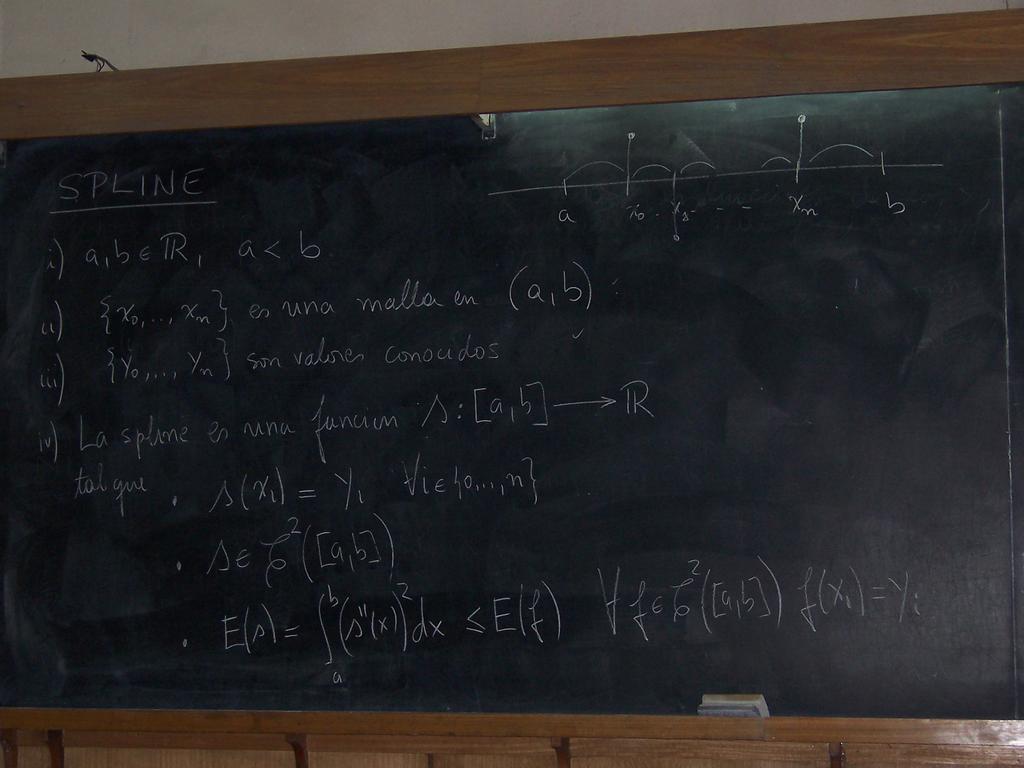 SPLINE
a x₀ . x₁ - - - xₙ b
i) a,b ∈ ℝ, a < b
ii) {x₀,..., xₙ} es una malla en (a,b)
iii) {y₀,..., yₙ} son valores conocidos
iv) La spline es una funcion s : [a,b] → ℝ
tal que . s(xᵢ) = yᵢ ∀i∈{0,...,n}
. s ∈ C²([a,b])
. E(s) = ∫ₐᵇ (s''(x))² dx ≤ E(f) ∀ f ∈ C²([a,b]) f(xᵢ) = yᵢ